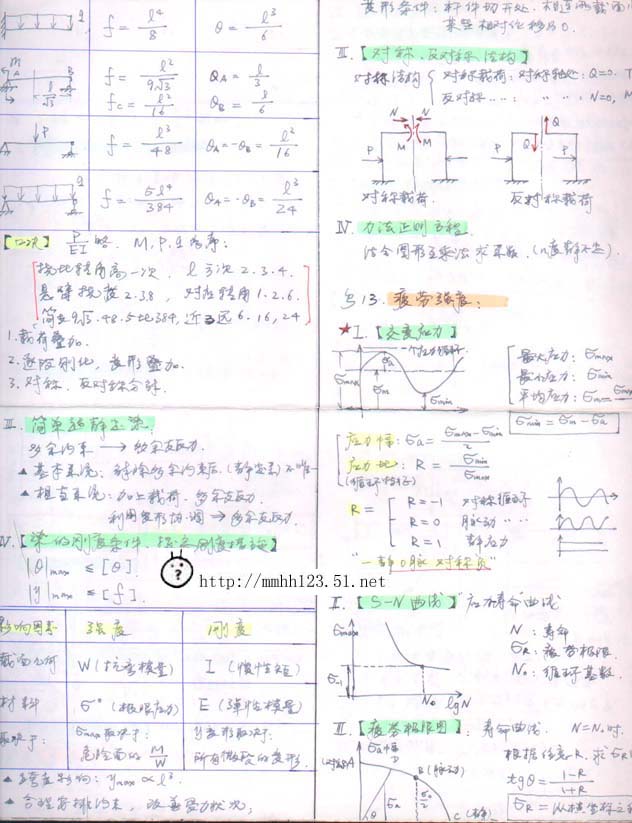 q
f = l⁴/8
θ = l³/6
M
A
B
l/√3
f = l²/9√3
fc = l²/16
θA = l/3
θB = l/6
P
f = l³/48
θA = -θB = l²/16
q
f = 5l⁴/384
θA = -θB = l³/24
【口诀】 P/EI 略. M.P.q为序:
挠比转角高一次, l 三次 2.3.4.
悬臂挠度 2.3.8, 对应转角 1.2.6.
简支 9√3.48.5比384, 近3远6.16,24
1.载荷叠加.
2.逐段刚化, 变形叠加.
3.对称. 反对称分解.
Ⅲ. 简单超静定梁:
多余约束 → 多余支反力.
▲基本系统: 解除多余约束后.(静定梁)不唯一
▲相当系统: 加上载荷. 多余支反力.
利用变形协调 → 多余支反力.
Ⅳ.【梁的刚度条件.
|θ|max ≤ [θ].
|y|max ≤ [f].
影响因素 强度 刚度
截面几何 W(抗弯模量) I (惯性矩)
材料 σ° (极限应力) E (弹性模量)
取决于: σmax取决于: 危险面的 M/W y变形取决: 所有微段的变形.
▲跨度影响: ymax ∝ l³.
▲合理安排约束, 改善受力状况;
变形条件: 杆件切开处. 相连两截面
某些相对位移为0.
Ⅲ.【对称. 及对称结构】
对称结构 对称载荷: 对称轴处: Q=0. T
反对称 ....: 〃 〃 .: N=0, M
N N
M M
P
对称载荷.
Q
Q
P P
反对称载荷
Ⅳ. 力法正则方程.
结合图形互乘法求系数. (n度静不定).
第13. 疲劳强度:
★Ⅰ.【交变应力】
一个应力循环
σmax
σa
σm
σmin
最大应力: σmax
最小应力: σmin
平均应力: σm =
σmin = σm - σa
应力幅: σa = (σmax - σmin)/2
应力比: R = σmin/σmax
(循环特征)
R =
R=-1 对称循环
R=0 脉动 〃 〃
R=1 静应力
一静0脉对称负
http://mmhh123.51.net
Ⅱ. 【S-N曲线】应力寿命曲线
σmax
σ-1
N₀ lgN
N : 寿命
σR: 疲劳极限
N₀: 循环基数.
Ⅲ【疲劳极限图】: 寿命曲线. N=N₀时.
根据任意R. 求σR
tgθ = (1-R)/(1+R)
σR =
σa幅
(对称)A
B(脉动)
σa
σ₀/2
θ
C (静)